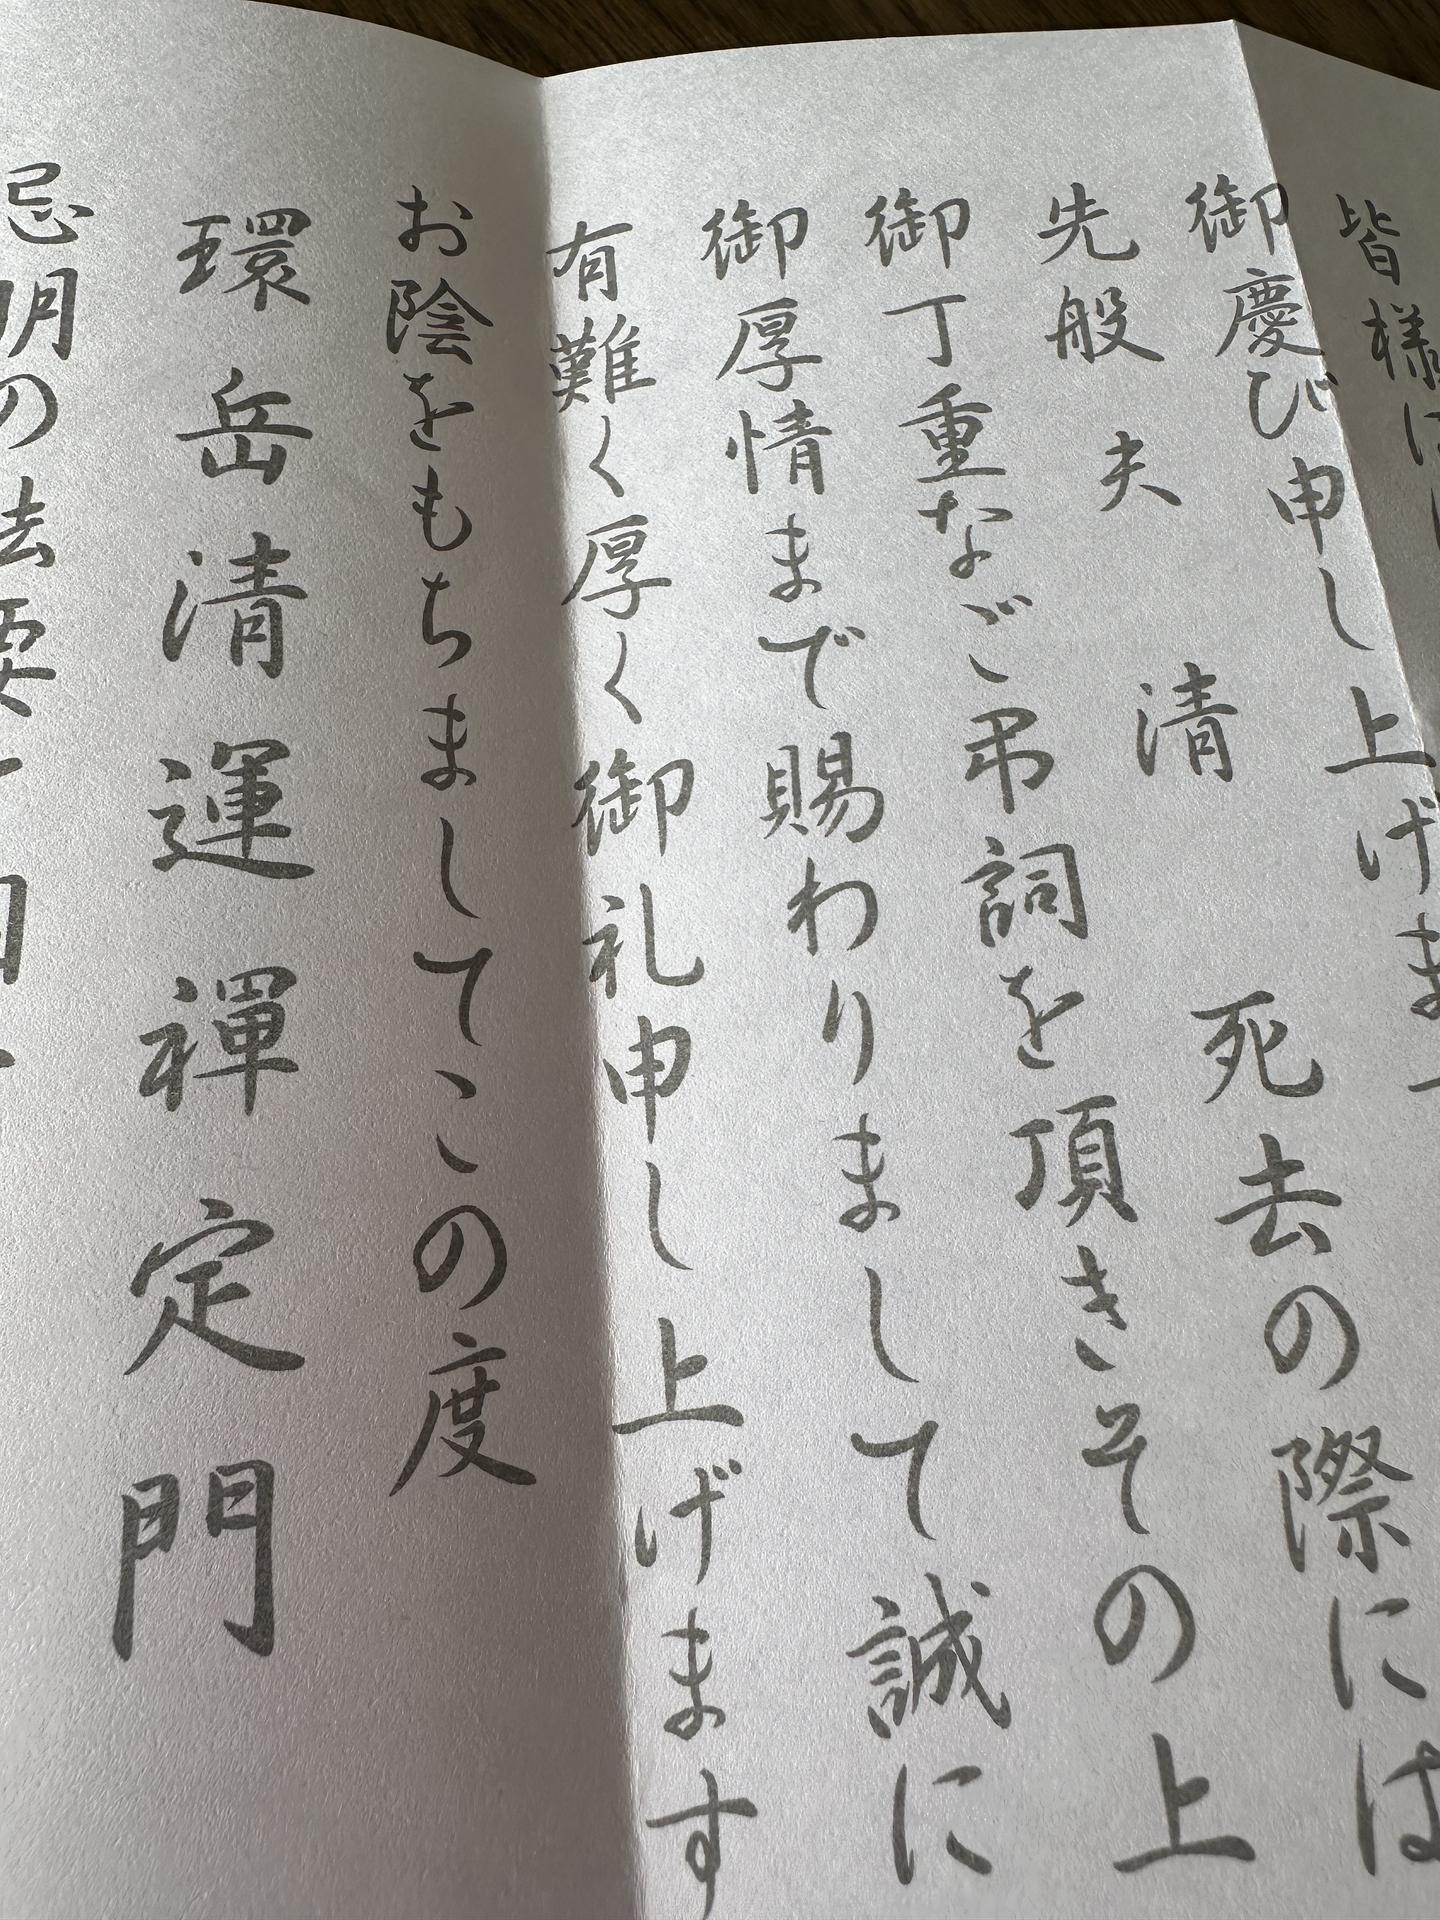 皆様に
御慶び申し上げます
先般 夫 清 死去の際には
御丁重なご弔詞を頂きその上
御厚情まで賜わりまして誠に
有難く厚く御礼申し上げます
お陰をもちましてこの度
環岳清運禅定門
忌明の法要を